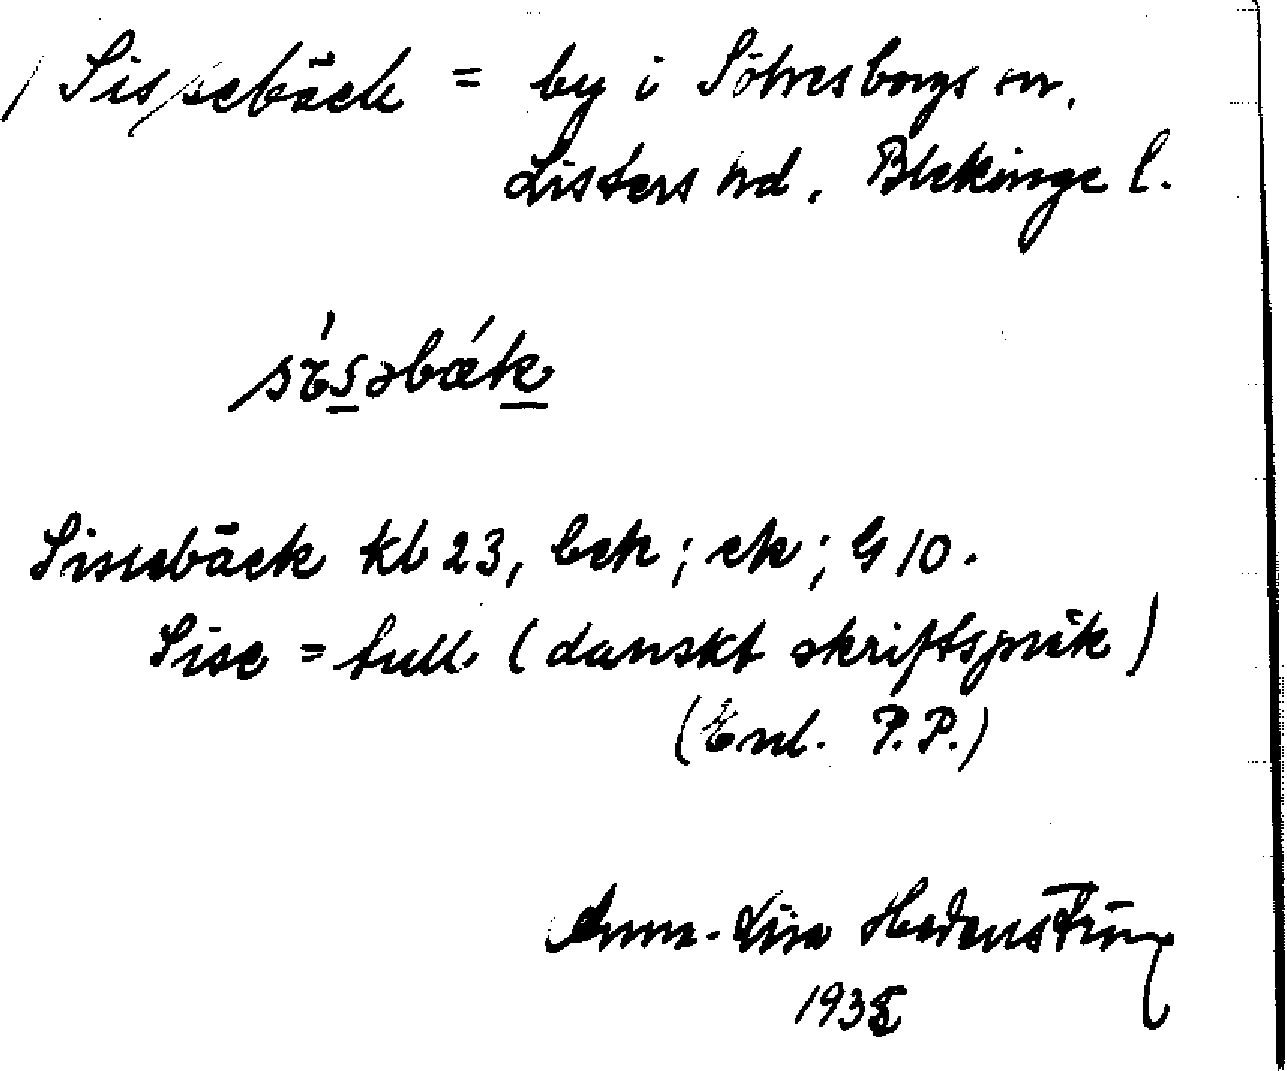 Sissebäck = by i Sölvesborgs sn.
Listers hd, Blekinge l.
Sissebäck kb 23, bek; ek; G 10.
Sise = tull (danskt skriftspråk)
(Enl. P.P.)
Anna-Lisa Hedenström
1935